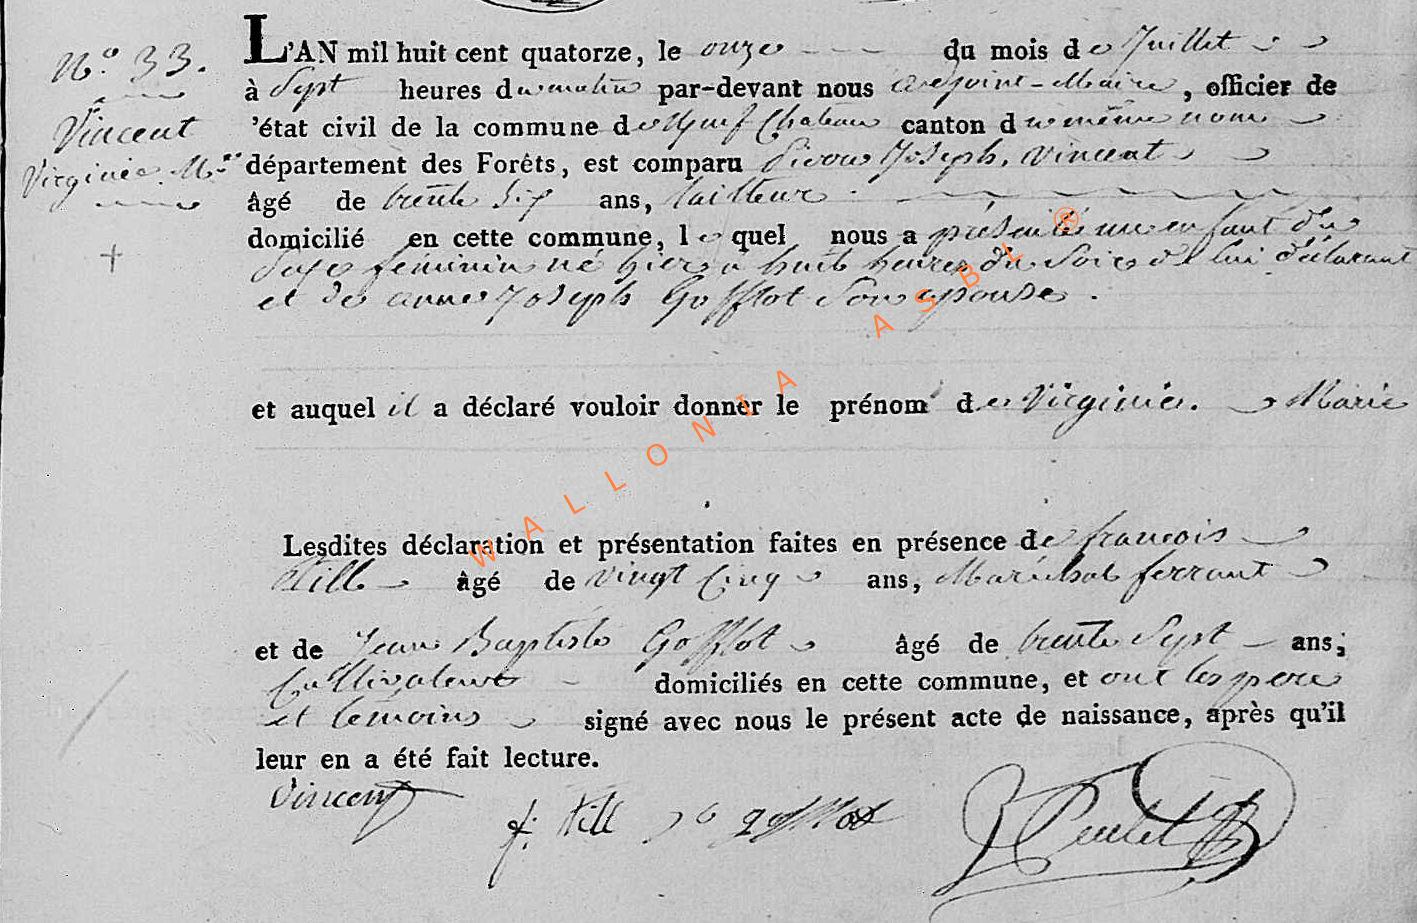 N.° 33.
Vincent
Virginie. M.ie
L'AN mil huit cent quatorze, le onze du mois de Juillet
à Sept heures du matin par-devant nous adjoint-Maire, officier de
'état civil de la commune de Neuf Chateau canton du même nom
département des Forêts, est comparu Joseph, Vincent
âgé de trente ans, tailleur
domicilié en cette commune, le quel nous a présenté un enfant du
Sexe féminin né hier a huit heures du Soir de lui déclarant
et de anne Joseph Gofflot Son epouse.
et auquel il a déclaré vouloir donner le prénom de Virginie. Marie
Lesdites déclaration et présentation faites en présence de francois
Till âgé de vingt Cinq ans, Maréchal ferrant
et de Jean Baptiste Gofflot âgé de trente Sept ans;
Cultivateur domiciliés en cette commune, et ont les pere
et temoins signé avec nous le présent acte de naissance, après qu'il
leur en a été fait lecture.
Vincent
f. Till gofflot
WALLONIA ASBL ®